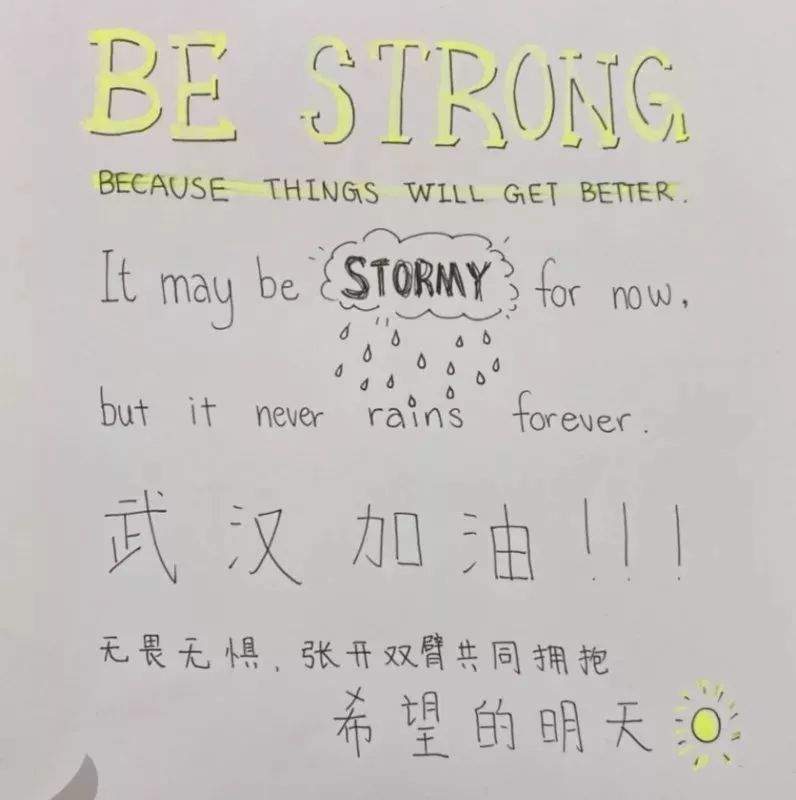 BE STRONG
BECAUSE THINGS WILL GET BETTER.
It may be STORMY for now,
but it never rains forever.
武汉加油!!!
无畏无惧,张开双臂共同拥抱
希望的明天